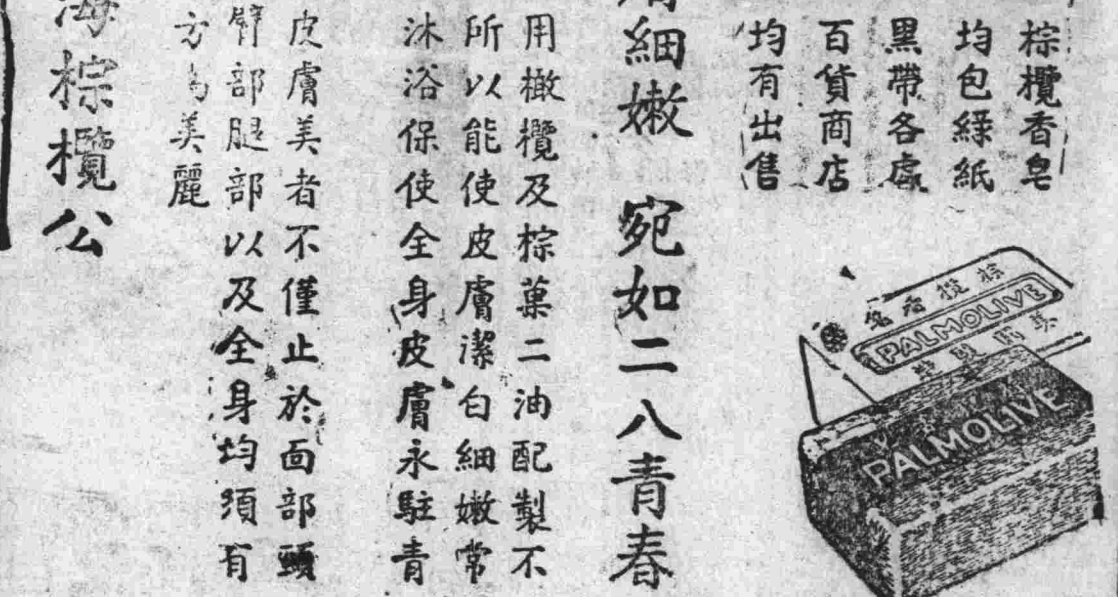 棕欖香皂
均包綠紙
黑帶各處
百貨商店
均有出售
PALMOLIVE
PALMOLIVE
細嫩 宛如二八青春
用橄欖及棕菓二油配製不
所以能使皮膚潔白細嫩常
沐浴保使全身皮膚永駐青
皮膚美者不僅止於面部頭
臂部腿部以及全身均須有
方為美麗
海棕欖公